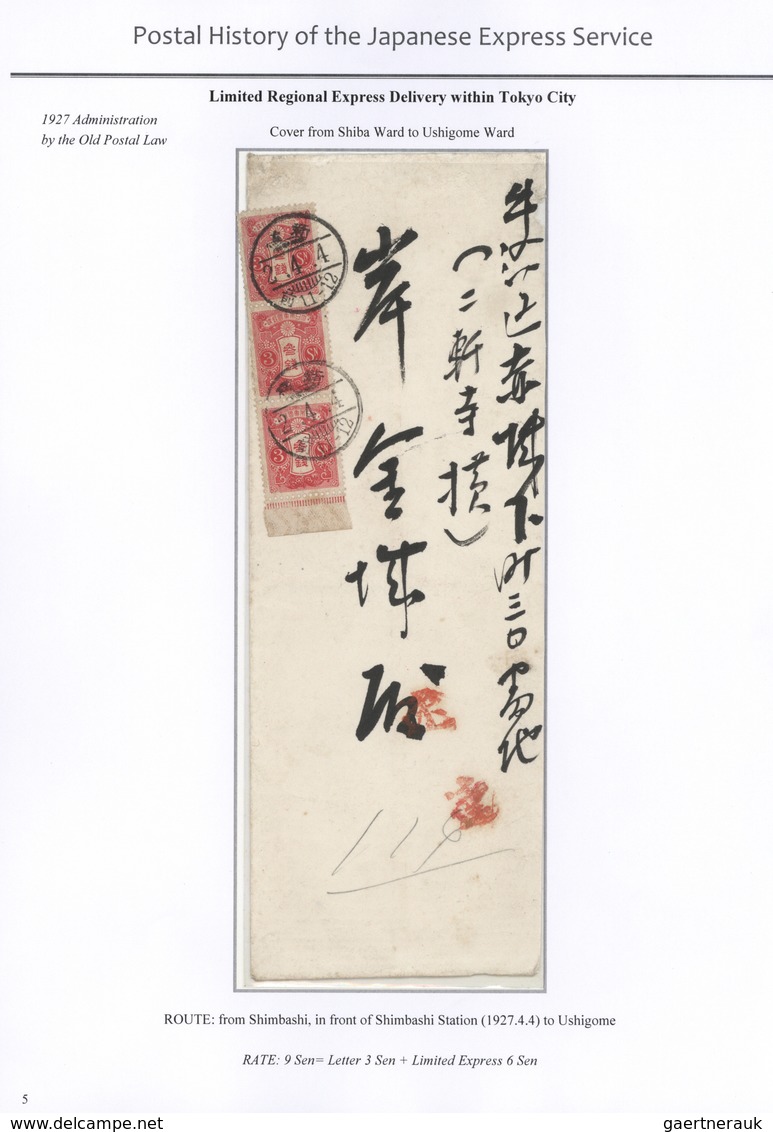 Postal History of the Japanese Express Service
Limited Regional Express Delivery within Tokyo City
1927 Administration
by the Old Postal Law
Cover from Shiba Ward to Ushigome Ward
牛込区赤城下町三日
(二軒寺横)
岸金城殿
3 Sn
2.4.4
11-12
3 Sn
2.4.4
-12
3 Sn
116
ROUTE: from Shimbashi, in front of Shimbashi Station (1927.4.4) to Ushigome
RATE: 9 Sen= Letter 3 Sen + Limited Express 6 Sen
5
www.delcampe.net
gaertnerauk